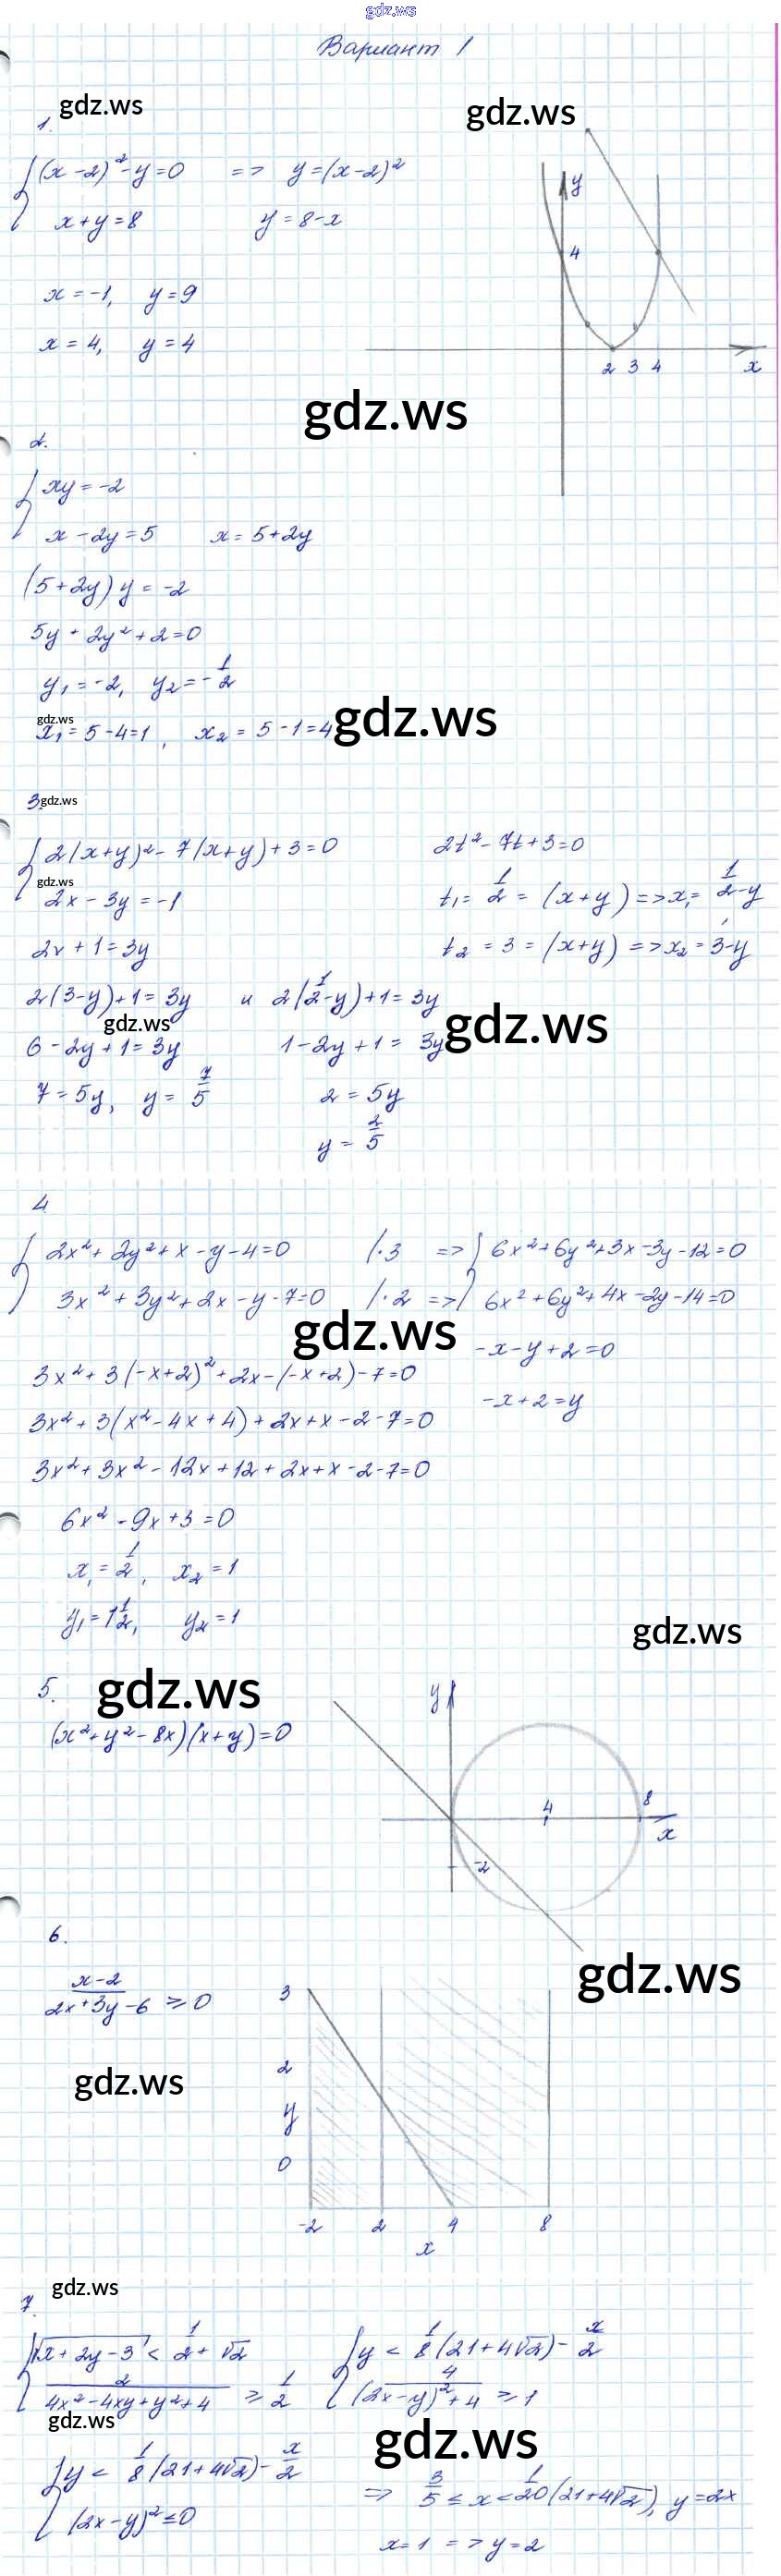 gdz.ws
Вариант 1
gdz.ws
gdz.ws
1.
(x-2)² - y = 0 => y = (x-2)²
x + y = 8 y = 8 - x
x = -1, y = 9
x = 4, y = 4
y
4
2 3 4 x
gdz.ws
2.
xy = -2
x - 2y = 5 x = 5 + 2y
(5 + 2y) y = -2
5y + 2y² + 2 = 0
y₁ = -2, y₂ = -1/2
gdz.ws
x₁ = 5 - 4 = 1, x₂ = 5 - 1 = 4
gdz.ws
3.
gdz.ws
2(x+y)² - 7(x+y) + 3 = 0 2t² - 7t + 3 = 0
gdz.ws
2x - 3y = -1 t₁ = 1/2 = (x+y) => x₁ = 1/2 - y
2x + 1 = 3y t₂ = 3 = (x+y) => x₂ = 3 - y
2(3-y) + 1 = 3y и 2(1/2 - y) + 1 = 3y
gdz.ws
gdz.ws
6 - 2y + 1 = 3y 1 - 2y + 1 = 3y
7 = 5y, y = 7/5 2 = 5y
y = 2/5
4
2x² + 2y² + x - y - 4 = 0 |·3 => 6x² + 6y² + 3x - 3y - 12 = 0
3x² + 3y² + 2x - y - 7 = 0 |·2 => 6x² + 6y² + 4x - 2y - 14 = 0
gdz.ws
-x - y + 2 = 0
3x² + 3(-x+2)² + 2x - (-x+2) - 7 = 0
-x + 2 = y
3x² + 3(x² - 4x + 4) + 2x + x - 2 - 7 = 0
3x² + 3x² - 12x + 12 + 2x + x - 2 - 7 = 0
6x² - 9x + 3 = 0
x₁ = 1/2, x₂ = 1
y₁ = 1 1/2, y₂ = 1
gdz.ws
5.
gdz.ws
(x² + y² - 8x)(x+y) = 0
y
4 8
x
-2
6.
gdz.ws
(x-2)/(2x+3y-6) ≥ 0
gdz.ws
3
2
y
0
-2 2 4 8
x
gdz.ws
7.
√(x+2y-3) < 1/2 + √2 y < 1/8 (21+4√2) - x/2
2/(4x²-4xy+y²+4) ≥ 1/2 4/((2x-y)²+4) ≥ 1
gdz.ws
gdz.ws
y < 1/8 (21+4√2) - x/2
(2x-y)² ≤ 0 => 3/5 ≤ x < 1/20 (21+4√2), y = 2x
x = 1 => y = 2